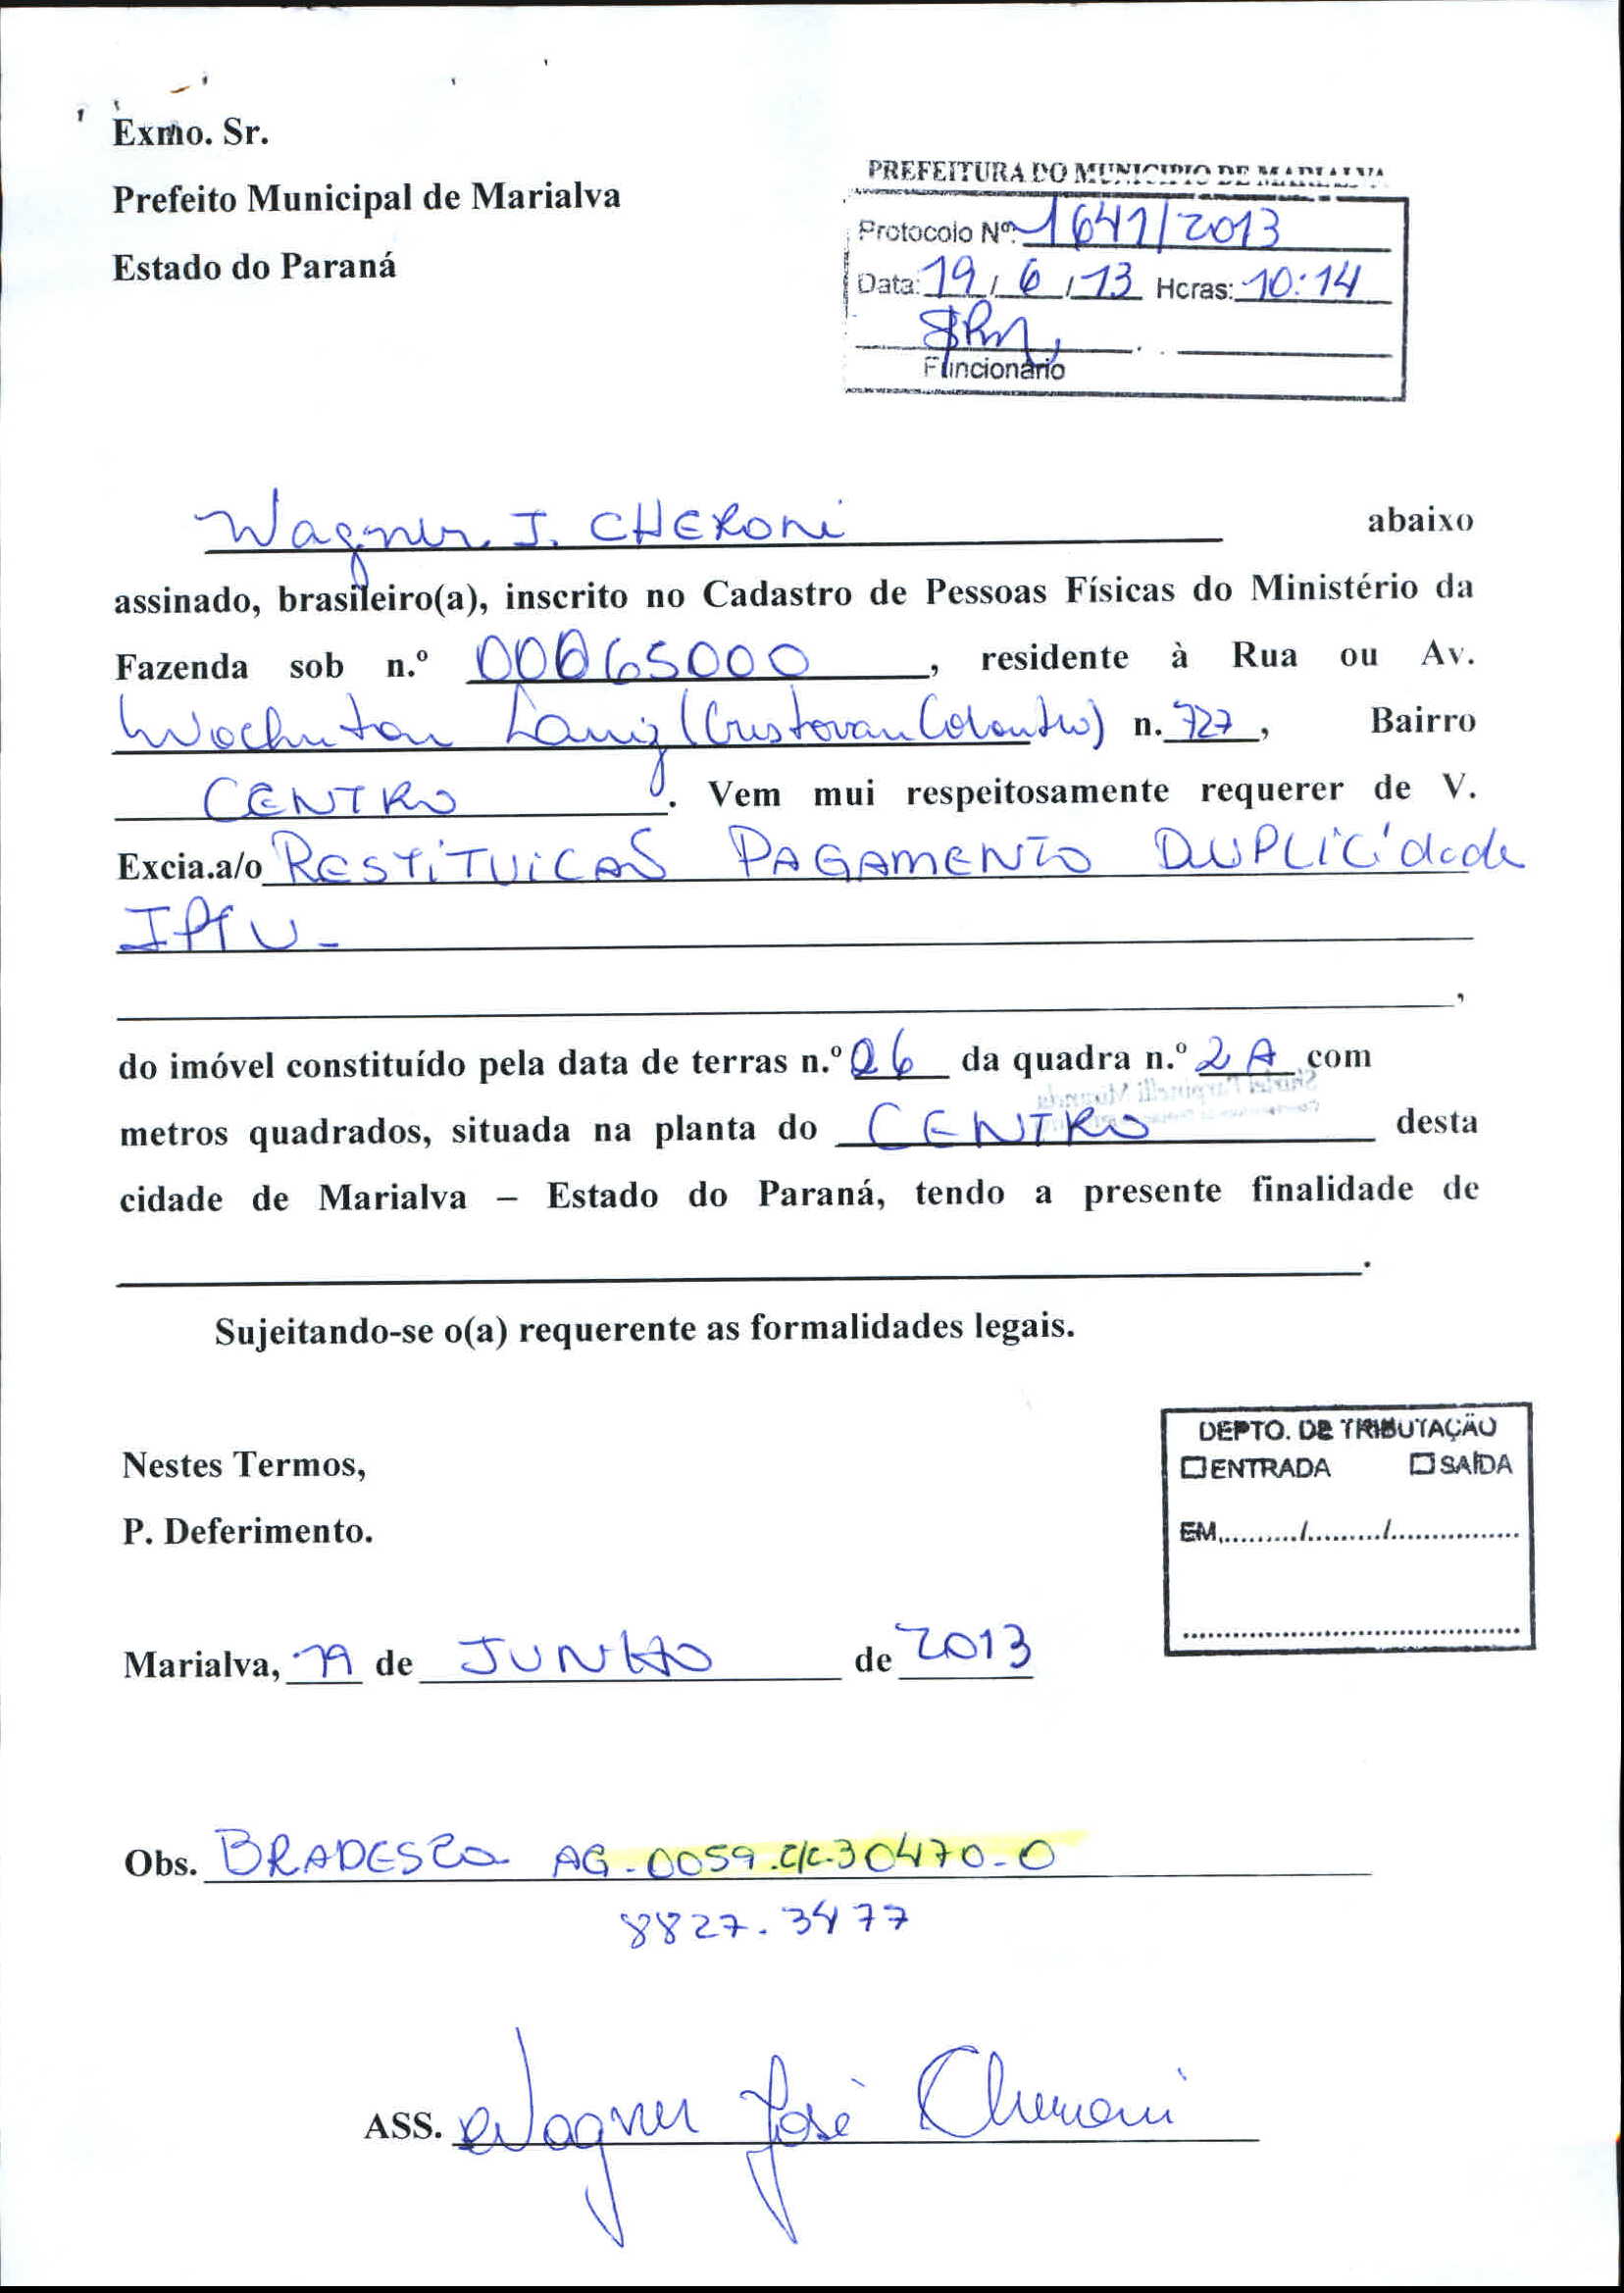 Exmo. Sr.
Prefeito Municipal de Marialva
Estado do Paraná
PREFEITURA DO MUNICIPIO DE MARIALVA
Protocolo Nº. 1641/2013
Data: 19 / 6 / 13 Horas: 10:14
Funcionário
Wagner J. CHERONI abaixo
assinado, brasileiro(a), inscrito no Cadastro de Pessoas Físicas do Ministério da
Fazenda sob n.º 00065000, residente à Rua ou Av.
(Cristovan Colombo) n. 727, Bairro
CENTRO. Vem mui respeitosamente requerer de V.
Excia.a/o RESTITUICAO PAGAMENTO DUPLICIdade
IPTU -
,
do imóvel constituído pela data de terras n.º 26 da quadra n.º 2A com
metros quadrados, situada na planta do CENTRO desta
cidade de Marialva – Estado do Paraná, tendo a presente finalidade de
.
Sujeitando-se o(a) requerente as formalidades legais.
Nestes Termos,
P. Deferimento.
DEPTO. DE TRIBUTAÇÃO
ENTRADA SAÍDA
EM,........./........./...............
Marialva, 19 de JUNHO de 2013
Obs. BRADESCO AG-0059.C/C-30470-0
8827.3477
ASS. Wagner José Cheroni